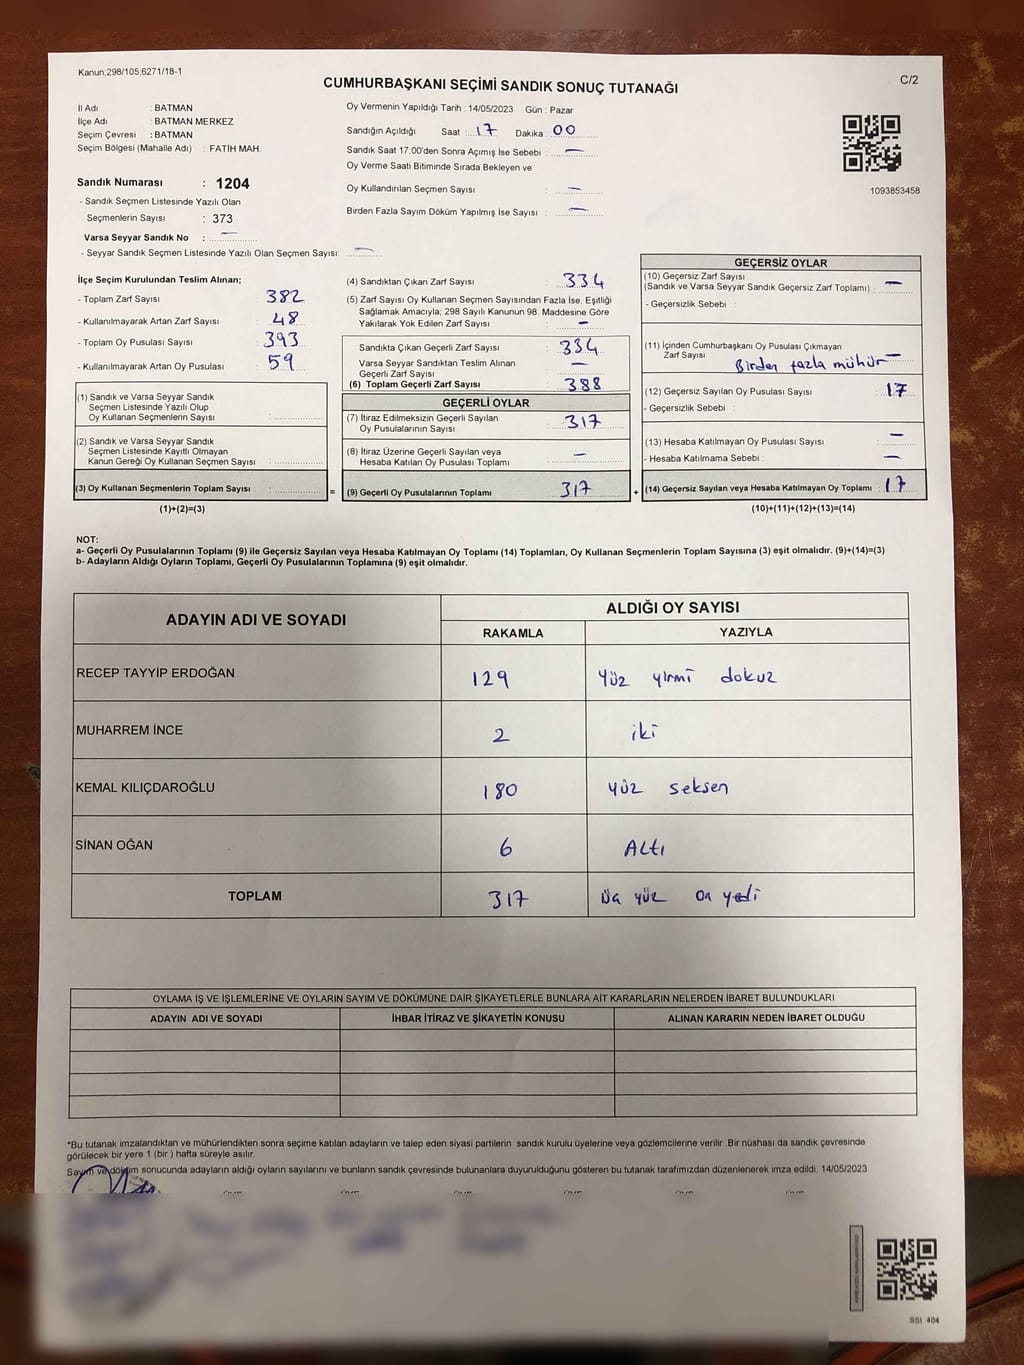 Kanun;298/105;6271/18-1
C/2
CUMHURBAŞKANI SEÇİMİ SANDIK SONUÇ TUTANAĞI
İl Adı : BATMAN
İlçe Adı : BATMAN MERKEZ
Seçim Çevresi : BATMAN
Seçim Bölgesi (Mahalle Adı) : FATİH MAH.
Sandık Numarası : 1204
- Sandık Seçmen Listesinde Yazılı Olan
Seçmenlerin Sayısı : 373
Varsa Seyyar Sandık No : —
- Seyyar Sandık Seçmen Listesinde Yazılı Olan Seçmen Sayısı: —
Oy Vermenin Yapıldığı Tarih : 14/05/2023 Gün : Pazar
Sandığın Açıldığı Saat : 17 Dakika : 00
Sandık Saat 17:00'den Sonra Açımış İse Sebebi : —
Oy Verme Saati Bitiminde Sırada Bekleyen ve
Oy Kullandırılan Seçmen Sayısı : —
Birden Fazla Sayım Döküm Yapılmış İse Sayısı : —
1093853458
İlçe Seçim Kurulundan Teslim Alınan;
- Toplam Zarf Sayısı : 382
- Kullanılmayarak Artan Zarf Sayısı : 48
- Toplam Oy Pusulası Sayısı : 393
- Kullanılmayarak Artan Oy Pusulası : 59
(1) Sandık ve Varsa Seyyar Sandık
Seçmen Listesinde Yazılı Olup
Oy Kullanan Seçmenlerin Sayısı :
(2) Sandık ve Varsa Seyyar Sandık
Seçmen Listesinde Kayıtlı Olmayan
Kanun Gereği Oy Kullanan Seçmen Sayısı :
(3) Oy Kullanan Seçmenlerin Toplam Sayısı :
(1)+(2)=(3)
(4) Sandıktan Çıkan Zarf Sayısı : 334
(5) Zarf Sayısı Oy Kullanan Seçmen Sayısından Fazla İse, Eşitliği
Sağlamak Amacıyla; 298 Sayılı Kanunun 98. Maddesine Göre
Yakılarak Yok Edilen Zarf Sayısı : —
Sandıkta Çıkan Geçerli Zarf Sayısı : 334
Varsa Seyyar Sandıktan Teslim Alınan
Geçerli Zarf Sayısı : —
(6) Toplam Geçerli Zarf Sayısı : 388
GEÇERLİ OYLAR
(7) İtiraz Edilmeksizin Geçerli Sayılan
Oy Pusulalarının Sayısı : 317
(8) İtiraz Üzerine Geçerli Sayılan veya
Hesaba Katılan Oy Pusulası Toplamı : —
= (9) Geçerli Oy Pusulalarının Toplamı : 317
GEÇERSİZ OYLAR
(10) Geçersiz Zarf Sayısı
(Sandık ve Varsa Seyyar Sandık Geçersiz Zarf Toplamı) : —
- Geçersizlik Sebebi :
(11) İçinden Cumhurbaşkanı Oy Pusulası Çıkmayan
Zarf Sayısı : —
Birden fazla mühür
(12) Geçersiz Sayılan Oy Pusulası Sayısı : 17
- Geçersizlik Sebebi :
(13) Hesaba Katılmayan Oy Pusulası Sayısı : —
- Hesaba Katılmama Sebebi : —
+ (14) Geçersiz Sayılan veya Hesaba Katılmayan Oy Toplamı : 17
(10)+(11)+(12)+(13)=(14)
NOT:
a- Geçerli Oy Pusulalarının Toplamı (9) ile Geçersiz Sayılan veya Hesaba Katılmayan Oy Toplamı (14) Toplamları, Oy Kullanan Seçmenlerin Toplam Sayısına (3) eşit olmalıdır. (9)+(14)=(3)
b- Adayların Aldığı Oyların Toplamı, Geçerli Oy Pusulalarının Toplamına (9) eşit olmalıdır.
ADAYIN ADI VE SOYADI ALDIĞI OY SAYISI
RAKAMLA YAZIYLA
RECEP TAYYİP ERDOĞAN 129 yüz yirmi dokuz
MUHARREM İNCE 2 iki
KEMAL KILIÇDAROĞLU 180 yüz seksen
SİNAN OĞAN 6 Altı
TOPLAM 317 Üç yüz on yedi
OYLAMA İŞ VE İŞLEMLERİNE VE OYLARIN SAYIM VE DÖKÜMÜNE DAİR ŞİKAYETLERLE BUNLARA AİT KARARLARIN NELERDEN İBARET BULUNDUKLARI
ADAYIN ADI VE SOYADI İHBAR İTİRAZ VE ŞİKAYETİN KONUSU ALINAN KARARIN NEDEN İBARET OLDUĞU
*Bu tutanak imzalandıktan ve mühürlendikten sonra seçime katılan adayların ve talep eden siyasi partilerin sandık kurulu üyelerine veya gözlemcilerine verilir .Bir nüshası da sandık çevresinde
görülecek bir yere 1 (bir ) hafta süreyle asılır.
Sayım ve döküm sonucunda adayların aldığı oyların sayılarını ve bunların sandık çevresinde bulunanlara duyurulduğunu gösteren bu tutanak tarafımızdan düzenlenerek imza edildi. 14/05/2023
SSI 404